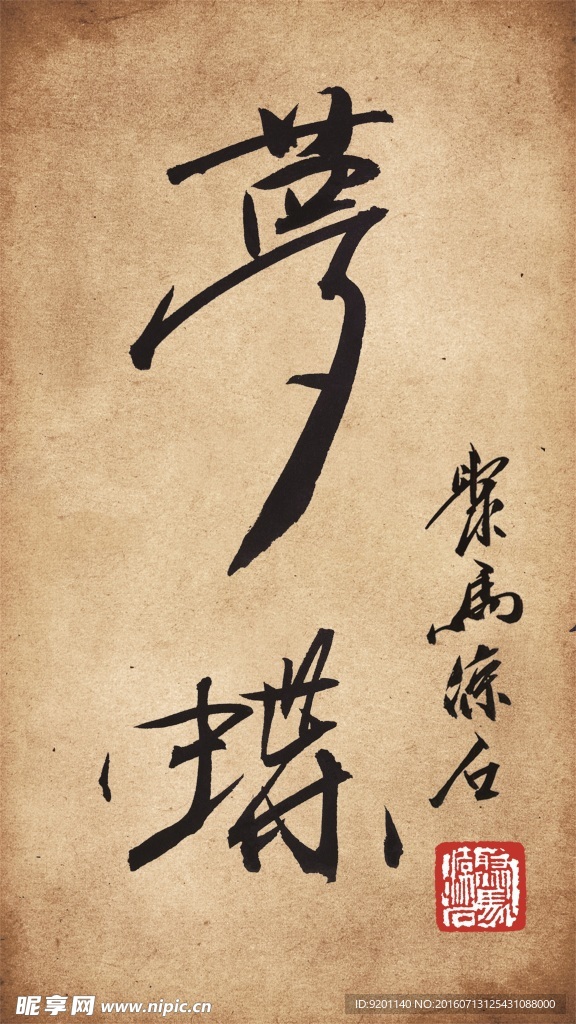 夢蝶
聚馬凉石
昵享网 www.nipic.cn
ID:9201140 NO:20160713125431088000